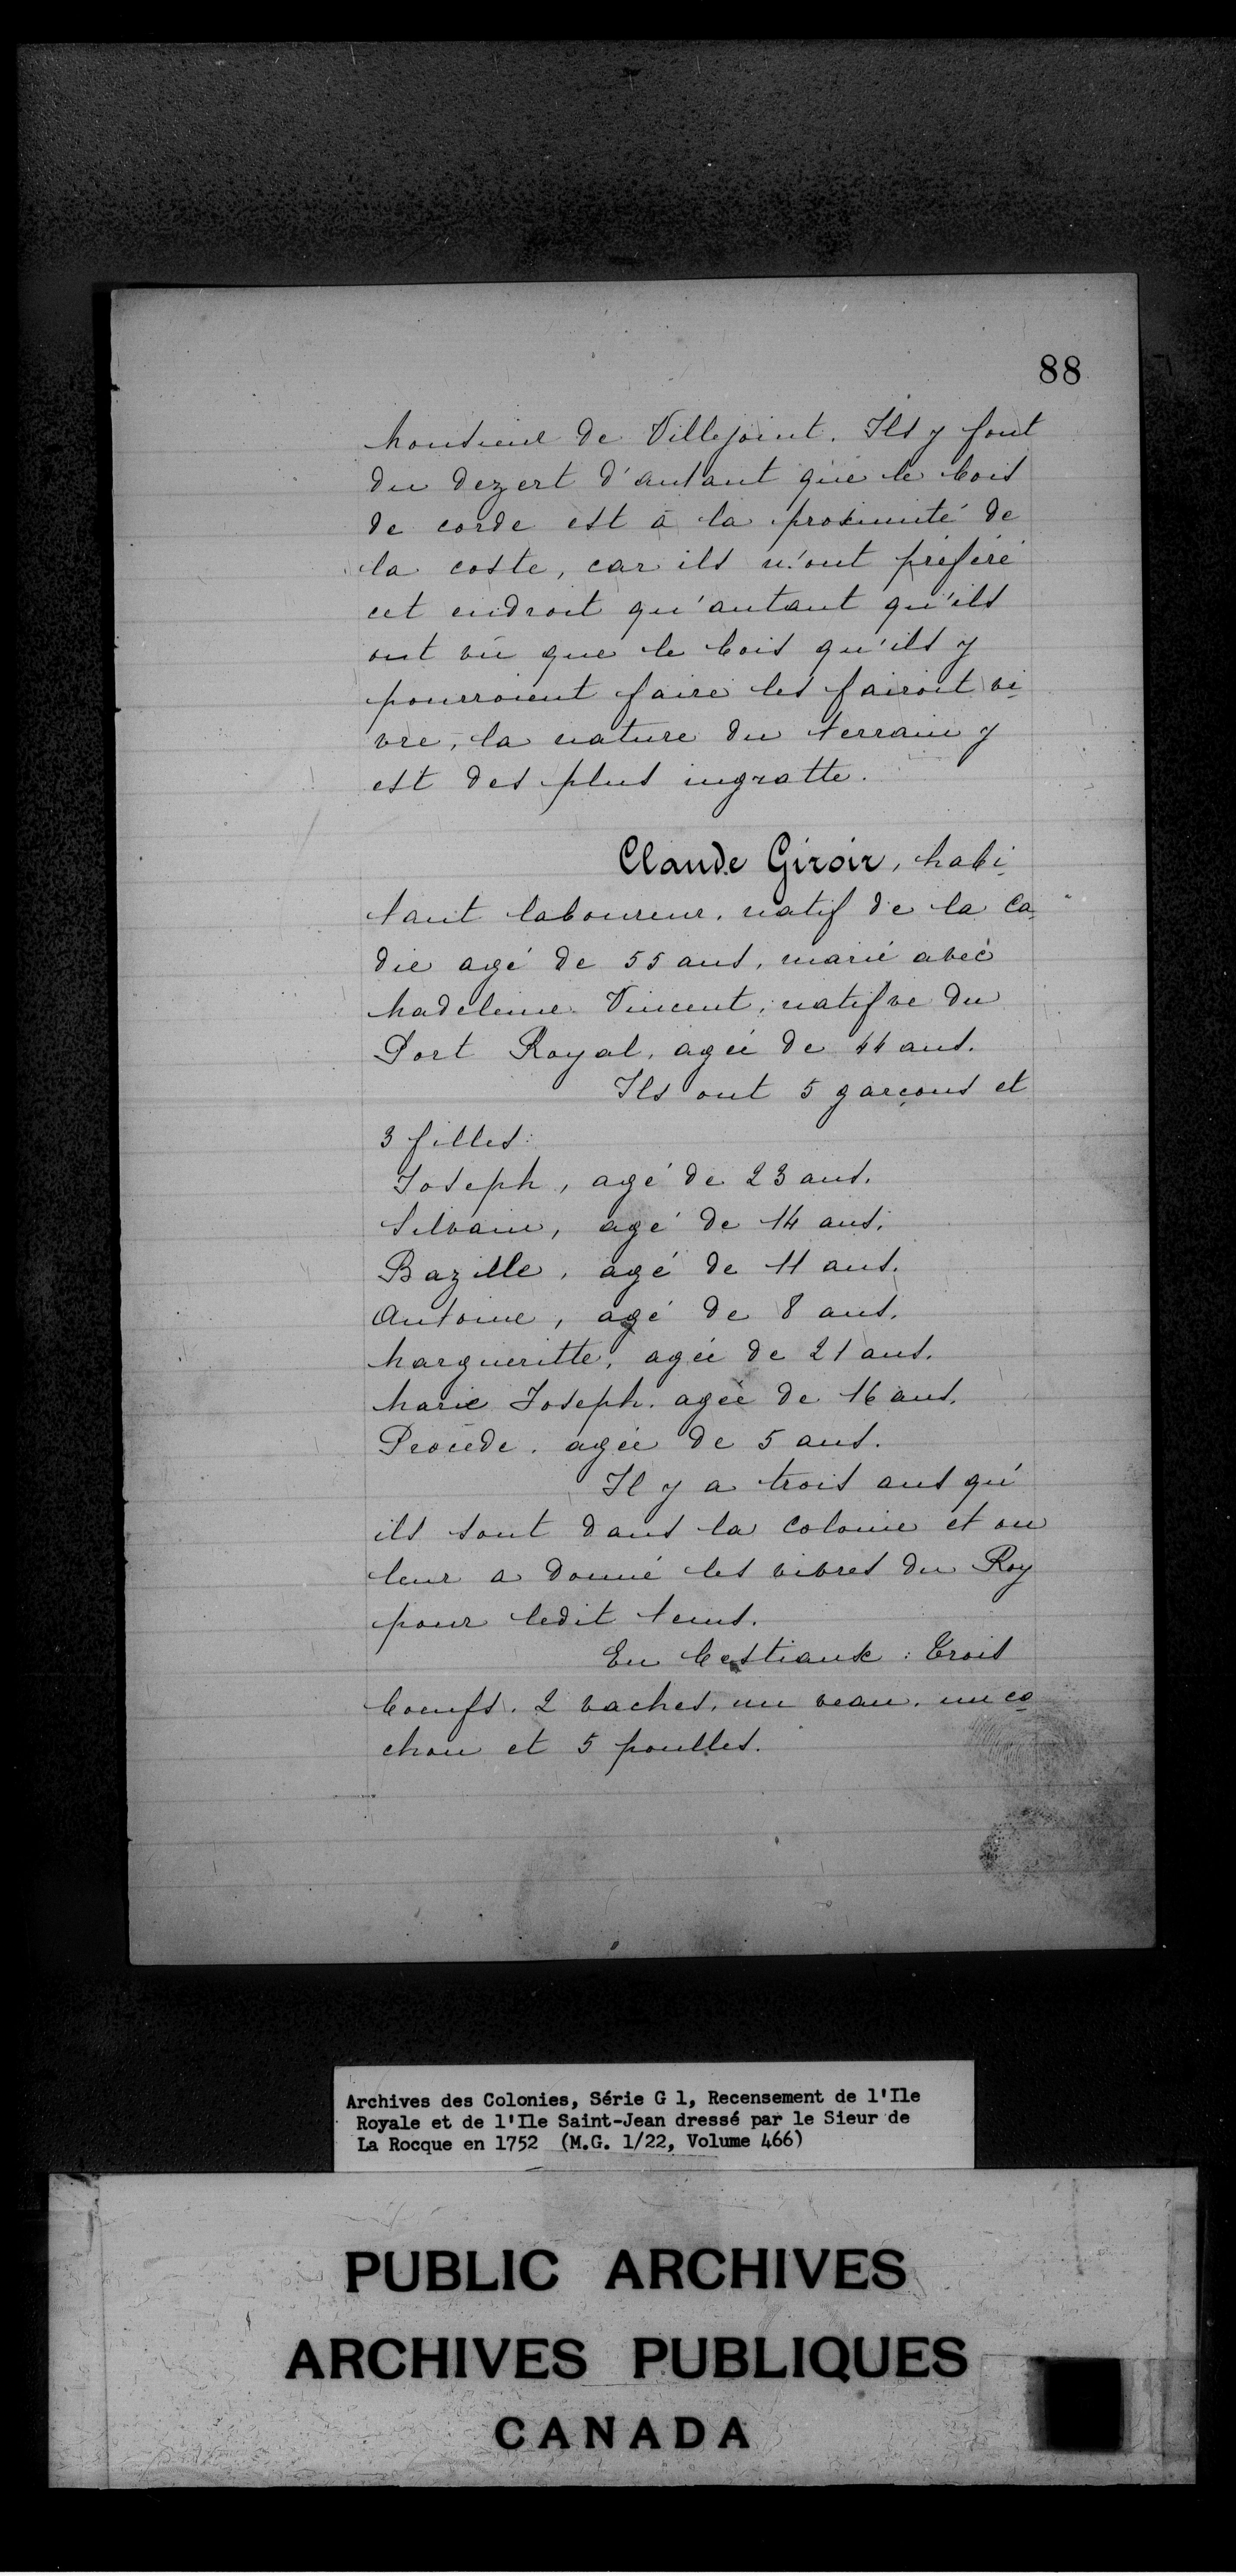 88
Monsieur de Villejoint. Ils y font
du dezert d'autant que le bois
de corde est à la proximité de
la coste, car ils n'ont préféré
cet endroit qu'autant qu'ils
ont vû que le bois qu'ils y
pourroient faire les fairoit vi
vre, la nature du terrain y
est des plus ingratte.
Claude Giroir, habi
tant laboureur, natif de la Ca
die agé de 55 ans, marié avec
Madeleine Vincent, natifve du
Port Royal, agée de 44 ans.
Ils ont 5 garçons et
3 filles:
Joseph, agé de 23 ans.
Silvain, agé de 14 ans.
Bazille, agé de 11 ans.
Antoine, agé de 8 ans.
Margueritte, agée de 21 ans.
Marie Joseph, agée de 16 ans.
agée de 5 ans.
Il y a trois ans qu'
ils sont dans la colonie et on
leur a donné les vivres du Roy
pour ledit tems.
En bestiaux : Trois
boeufs, 2 vaches, un veau, un co
chon et 5 poulles.
Archives des Colonies, Série G 1, Recensement de l'Ile
Royale et de l'Ile Saint-Jean dressé par le Sieur de
La Rocque en 1752 (M.G. 1/22, Volume 466)
PUBLIC ARCHIVES
ARCHIVES PUBLIQUES
CANADA